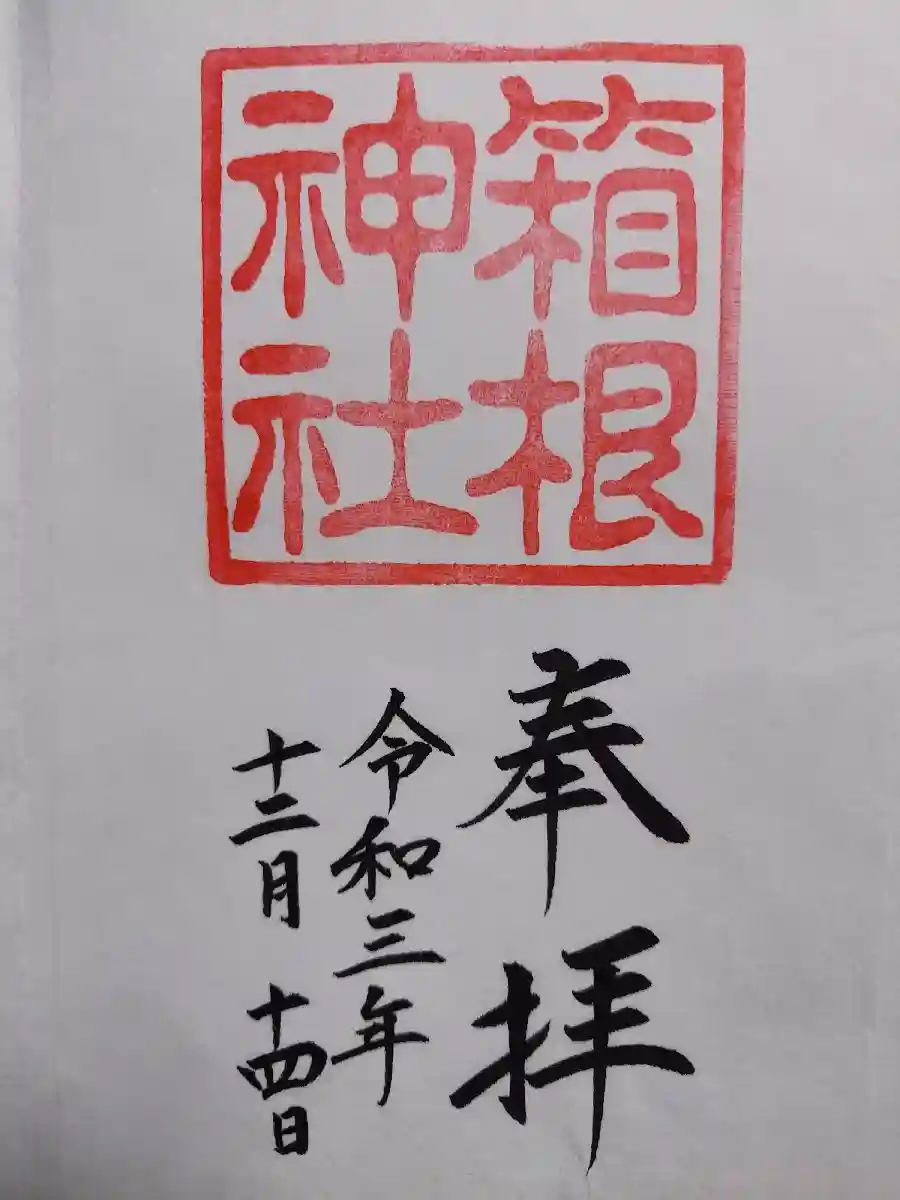 箱根
神社
奉拝
令和三年
十二月十四日